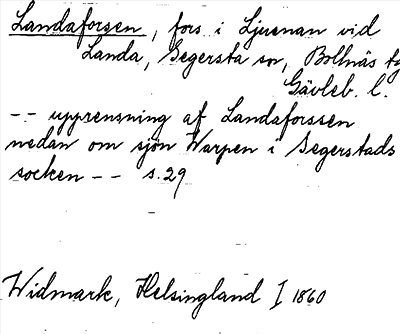 Landaforsen, fors i Ljusnan vid
Landa, Segersta sn, Bollnäs tg
Gävleb. l.
-- upprensning af Landaforssen
nedan om sjön Warpen i Segerstads
socken -- s.29
Widmark, Helsingland I 1860